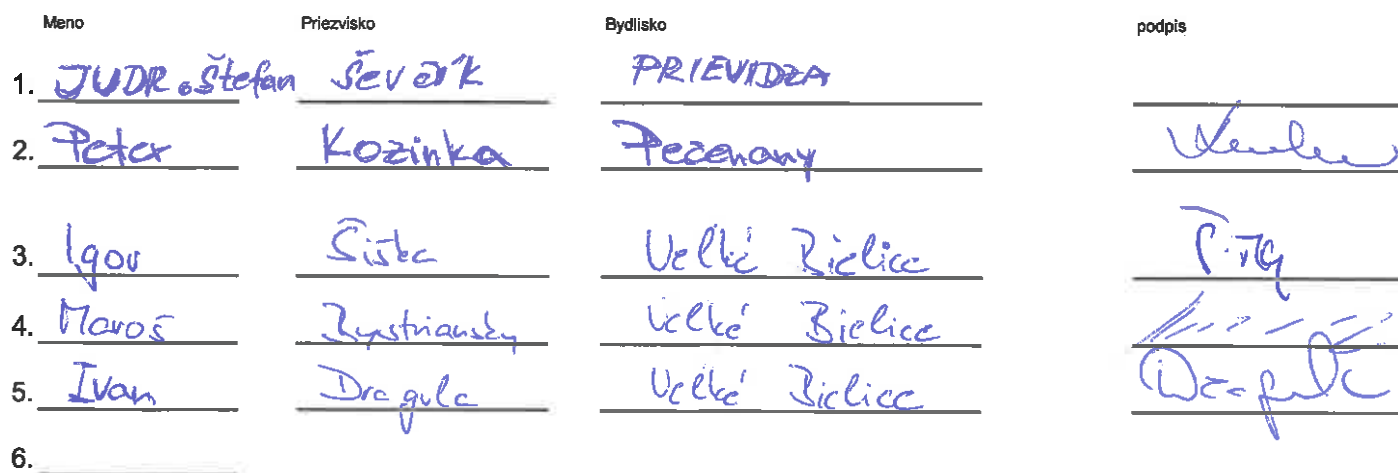 Meno Priezvisko Bydlisko podpis
1. JUDR. Štefan Ševčík PRIEVIDZA
2. Peter Kozinka Pečeňany
3. Igor Šiška Veľké Bielice
4. Maroš Bystriansky Veľké Bielice
5. Ivan Dragula Veľké Bielice
6.